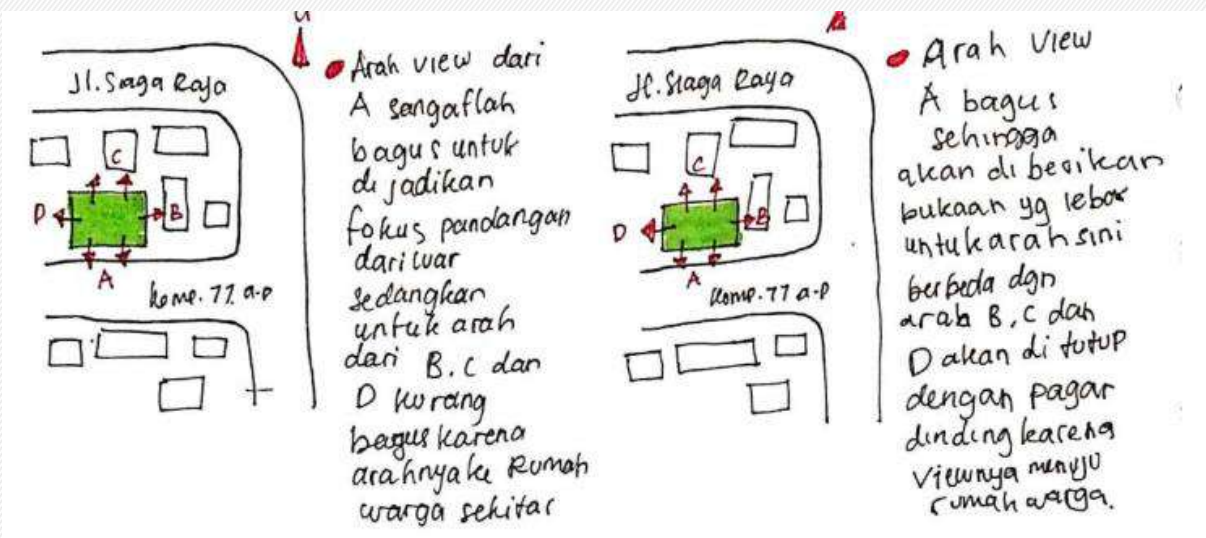 U
Jl. Siaga Raja
C
D
B
A
komp. 77 a-p
Arah view dari
A sangatlah
bagus untuk
di jadikan
fokus pandangan
dari luar
sedangkan
untuk arah
dari B, C dan
D kurang
bagus karena
arahnya ke Rumah
warga sekitar
Jl. Siaga Raya
C
D
B
A
Komp. 77 a-p
Arah view
A bagus
sehingga
akan di berikan
bukaan yg lebar
untuk arah sini
berbeda dgn
arah B, C dan
D akan di tutup
dengan pagar
dinding karena
viewnya menuju
rumah warga.